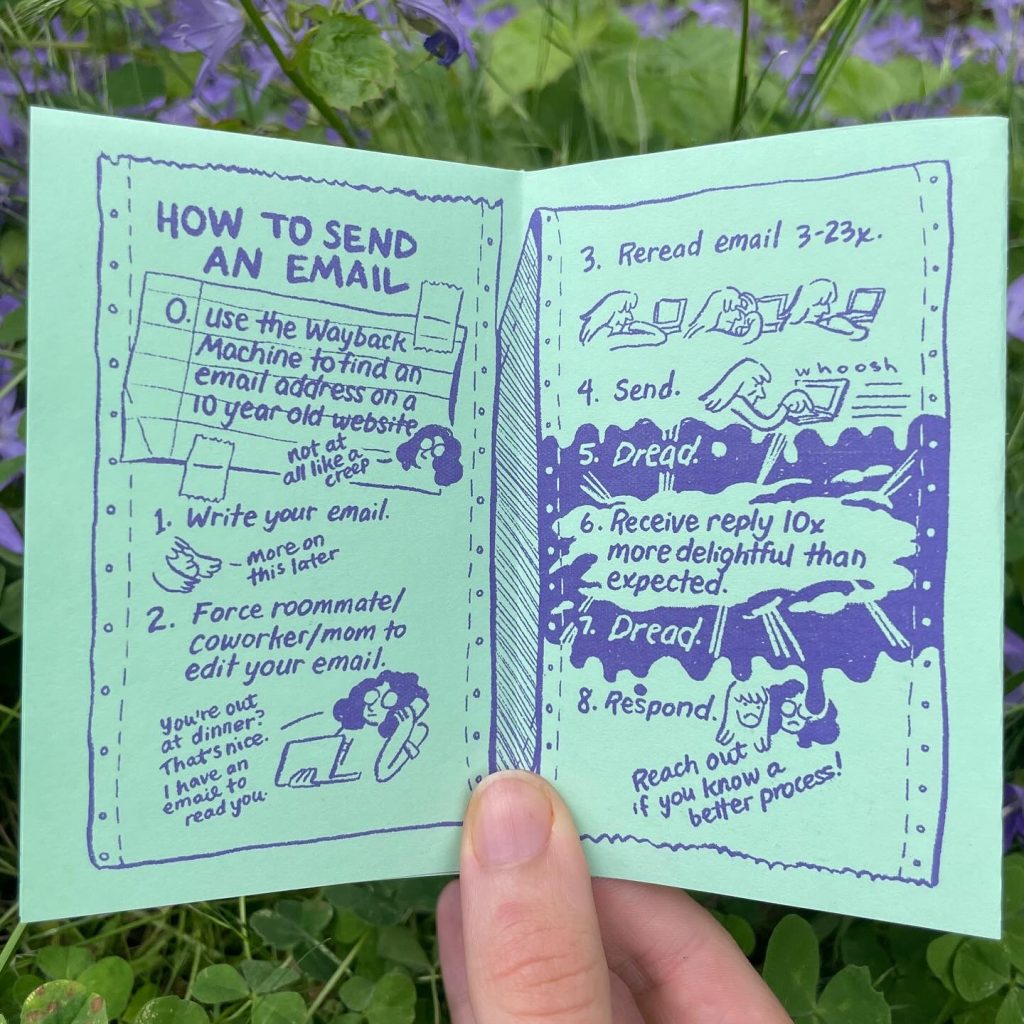 HOW TO SEND
AN EMAIL
0. use the Wayback
Machine to find an
email address on a
10 year old website
not at
all like a
creep
1. Write your email.
more on
this later
2. Force roommate/
coworker/mom to
edit your email.
You're out
at dinner?
That's nice.
I have an
email to
read you.
3. Reread email 3-23x.
4. Send.
whoosh
5. Dread.
6. Receive reply 10x
more delightful than
expected.
7. Dread.
8. Respond.
Reach out
if you know a
better process!